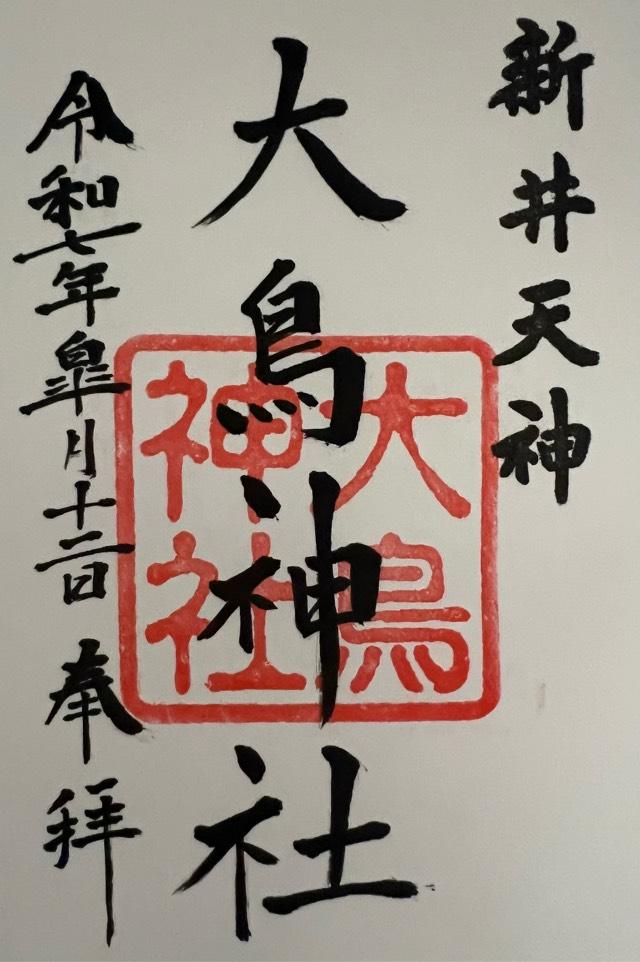 新井天神
大鳥神社
令和七年皐月十二日 奉拝
大鳥
神社